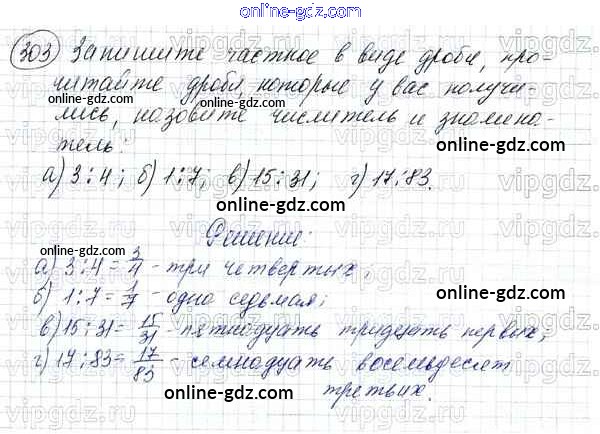 online-gdz.com
303 Запишите частное в виде дроби, про-
читайте дроби, которые у вас получи-
лись, назовите числитель и знамена-
тель:
а) 3:4; б) 1:7; в) 15:31; г) 17:83.
Решение:
а) 3:4 = 3/4 - три четвертых;
б) 1:7 = 1/7 - одна седьмая;
в) 15:31 = 15/31 - пятнадцать тридцать первых;
г) 17:83 = 17/83 - семнадцать восемьдесят
третьих.
online-gdz.com
online-gdz.com
online-gdz.com
online-gdz.com
online-gdz.com
online-gdz.com
online-gdz.com
vipgdz.ru